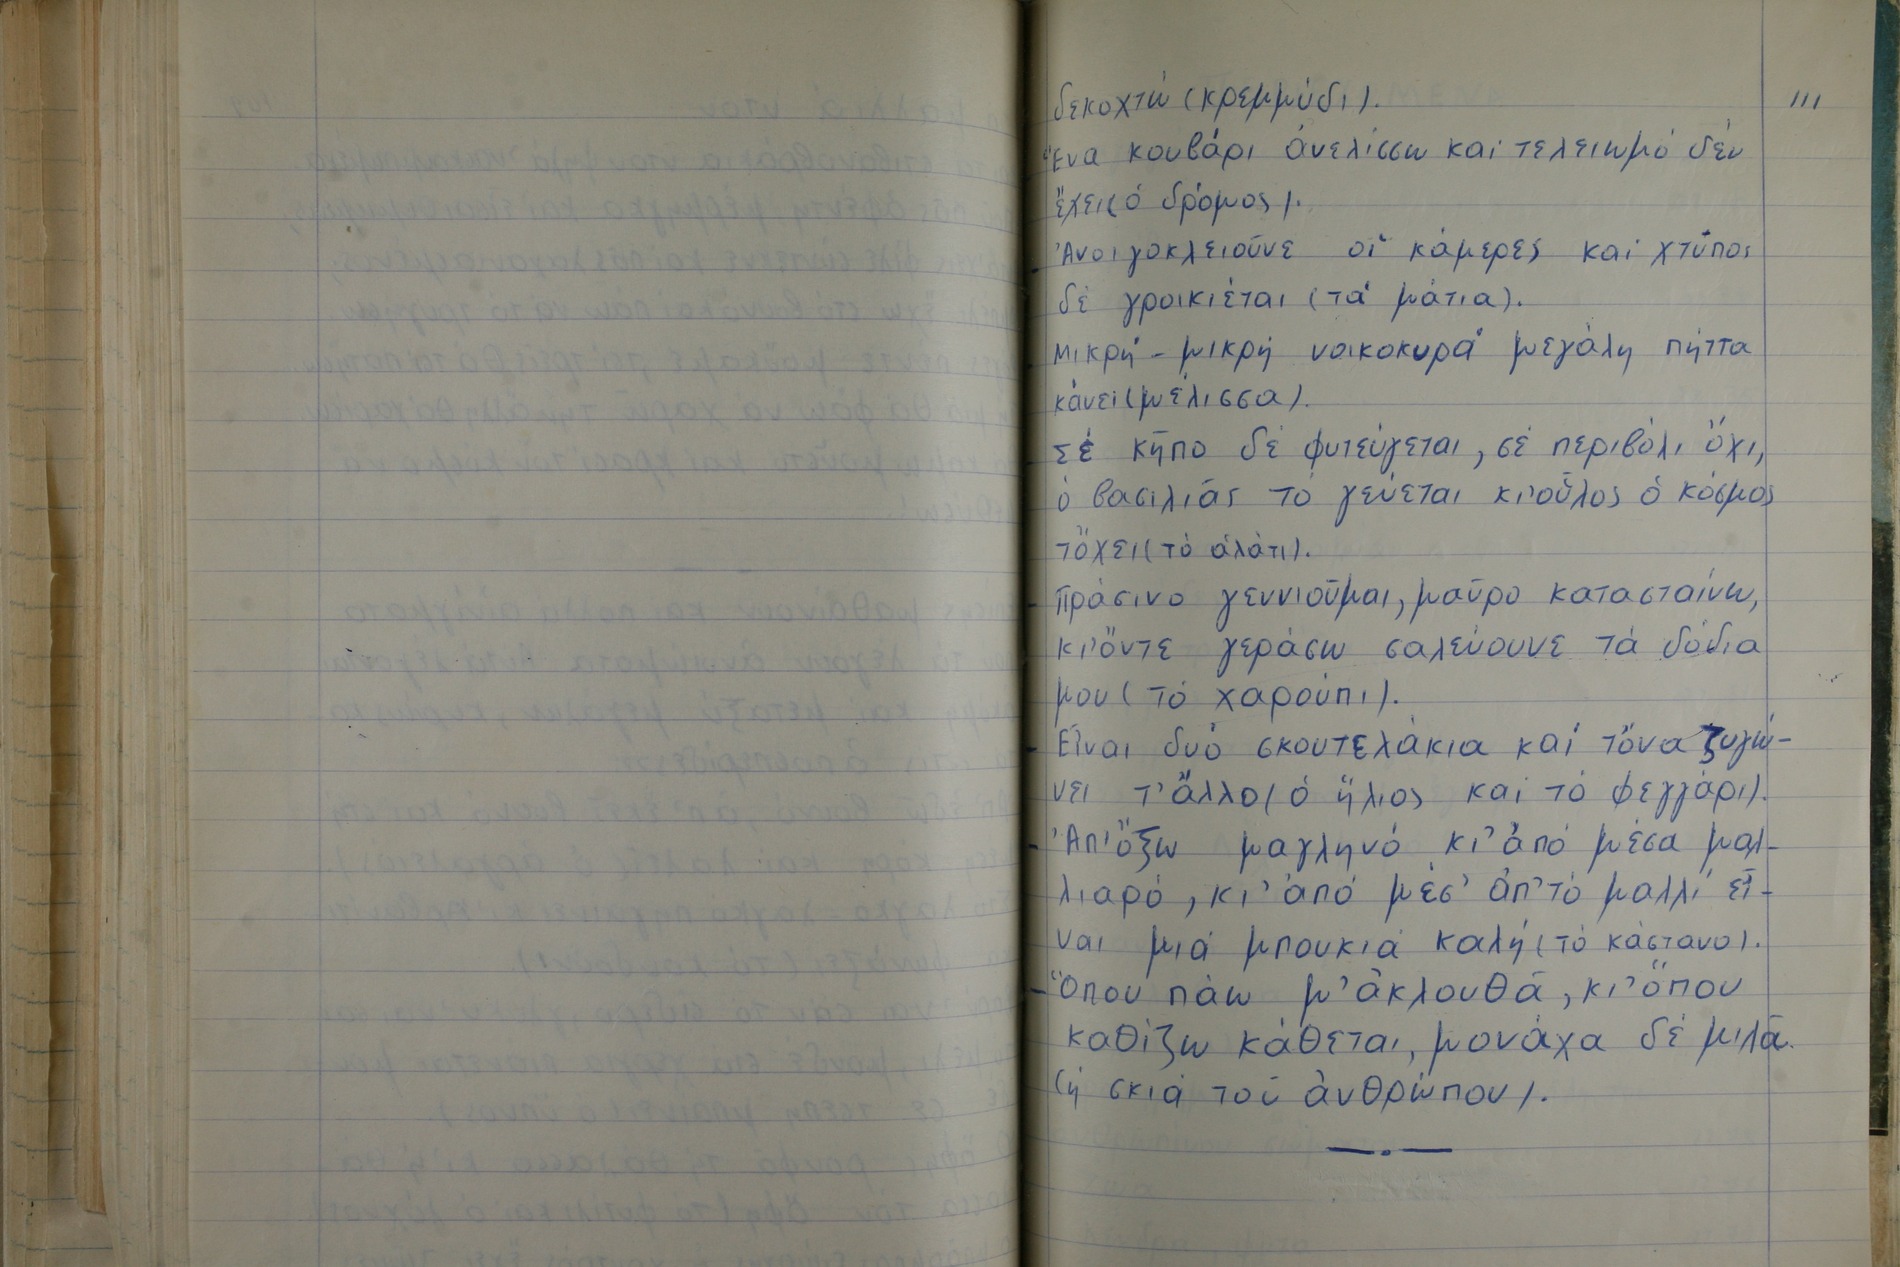 111
δεκοχτώ (κρεμμύδι).
Ἕνα κουβάρι ἀνελίσσω καί τελειωμό δέν
ἔχει (ὁ δρόμος).
Ἀνοιγοκλειοῦνε οἱ κάμερες καί χτύπος
δέ γροικιέται (τά μάτια).
Μικρή - μικρή νοικοκυρά μεγάλη πήττα
κάνει (μέλισσα).
- Σέ κῆπο δέ φυτεύγεται, σέ περιβόλι ὄχι,
ὁ βασιλιάς τό γεύεται κι'οὗλος ὁ κόσμος
τὄχει (τό ἁλάτι).
- Πράσινο γεννιοῦμαι, μαῦρο κατασταίνω,
κι'ὄντε γεράσω σαλεύουνε τά δόδια
μου (τό χαρούπι).
- Εἶναι δυό σκουτελάκια καί τὄνα ζυγώ-
νει τ'ἄλλο (ὁ ἥλιος καί τό φεγγάρι).
- Ἀπ'ὄξω μαγληνό κι'ἀπό μέσα μαλ-
λιαρό, κι'ἀπό μέσ' ἀπ'τό μαλλί εἶ-
ναι μιά μπουκιά καλή (τό κάστανο).
- Ὅπου πάω μ'ἀκλουθᾶ, κι'ὅπου
καθίζω κάθεται, μονάχα δέ μιλᾶ.
(ἡ σκιά τοῦ ἀνθρώπου).